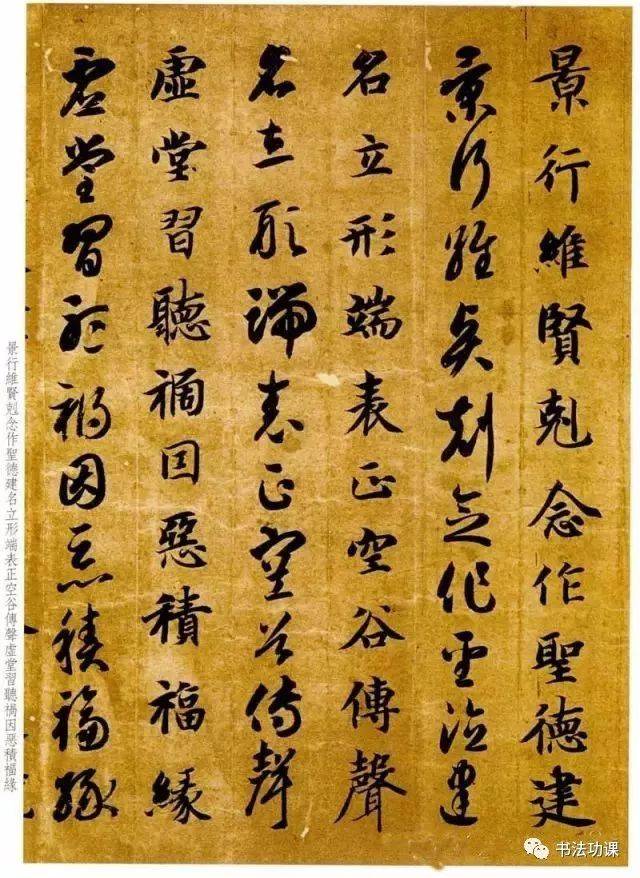 景行維賢剋念作聖德建
景行維賢剋念作聖德建
名立形端表正空谷傳聲
名立形端表正空谷傳聲
虛堂習聽禍因惡積福緣
虛堂習聽禍因惡積福緣
景行維賢剋念作聖德建名立形端表正空谷傳聲虛堂習聽禍因惡積福緣
书法功课